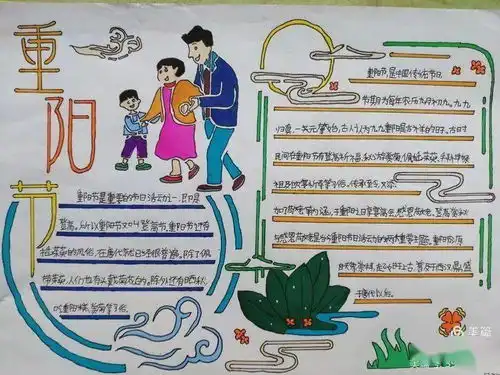 重阳节
重阳节是重要的节日活动之一,即是
登高,所以重阳节又叫登高节,重阳节还有
插茱萸的风俗,在唐代就已经很普遍。除了佩
带茱萸,人们也有头戴菊花的。除外还有晒秋
吃重阳糕,赏菊等习俗
重阳节,是中国传统节日。
节期为每年农历九月初九,九九
归真,一元肇始,古人认为九九重阳是吉祥的日子,古时
民间在重阳节有登高祈福、秋游赏菊、佩插茱萸、
祖及饮宴祈寿等习俗,传承至今,又添
加了敬老等内涵,于重阳之日享宴高会,感恩敬老。登高赏秋
与感恩敬老是当今重阳节日活动的两大重要主题。重阳节源
自天象崇拜,起始于上古,普及于西汉,鼎盛
于唐代以后。
美篇